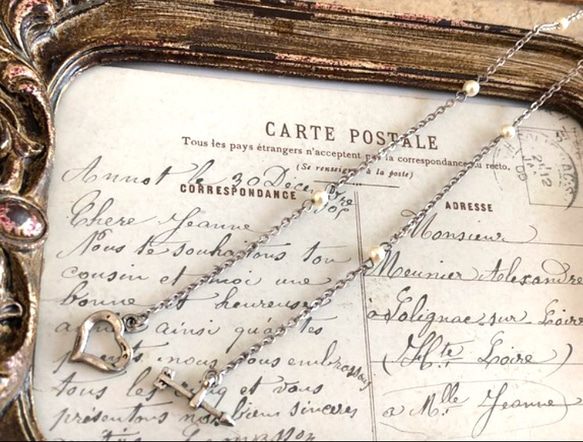 CARTE POSTALE
Tous les pays étrangers n'acceptent pas la correspondance au recto.
(Se renseigner à la poste)
CORRESPONDANCE
ADRESSE
Annot le 30 Decembre
Chere Jeanne
Nous te souhaitons ton
cousin et moi une
bonne et heureuse
ainsi qu'à tes
nous vous embrassons
tous les et vous
présentons nos biens sinceres
Monsieur
Meunier Alexandre
à Solignac sur Loire
(Hte Loire)
a Mlle Jeanne